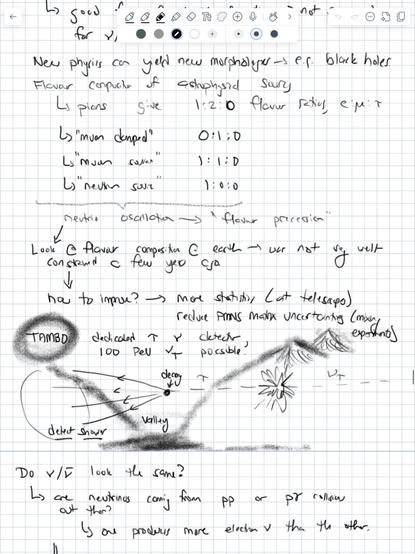 ↳ good
for ν,
New physics can yield new morphologies → e.g. black holes
Flavor composite of astophysical sources
↳ pions give 1:2:0 flavor ratios, e:μ:τ
↳ "muon damped" 0:1:0
↳ "muon source" 1:1:0
↳ "neutron source" 1:0:0
neutrino oscillation → "flavor precession"
Look @ flavor composition @ earth → was not very well
constrained a few yeo ago
how to improve? → more statistics (at telescopes)
reduce PMNS matrix uncertainties (mixing
experiments)
TAMBO dedicated τ ν detector,
100 PeV ντ possible,
decay τ ντ
valley
detect shower
Do ν/ν̄ look the same?
↳ are neutrinos coming from pp or pγ collision
out there?
↳ one produces more electron ν than the other.